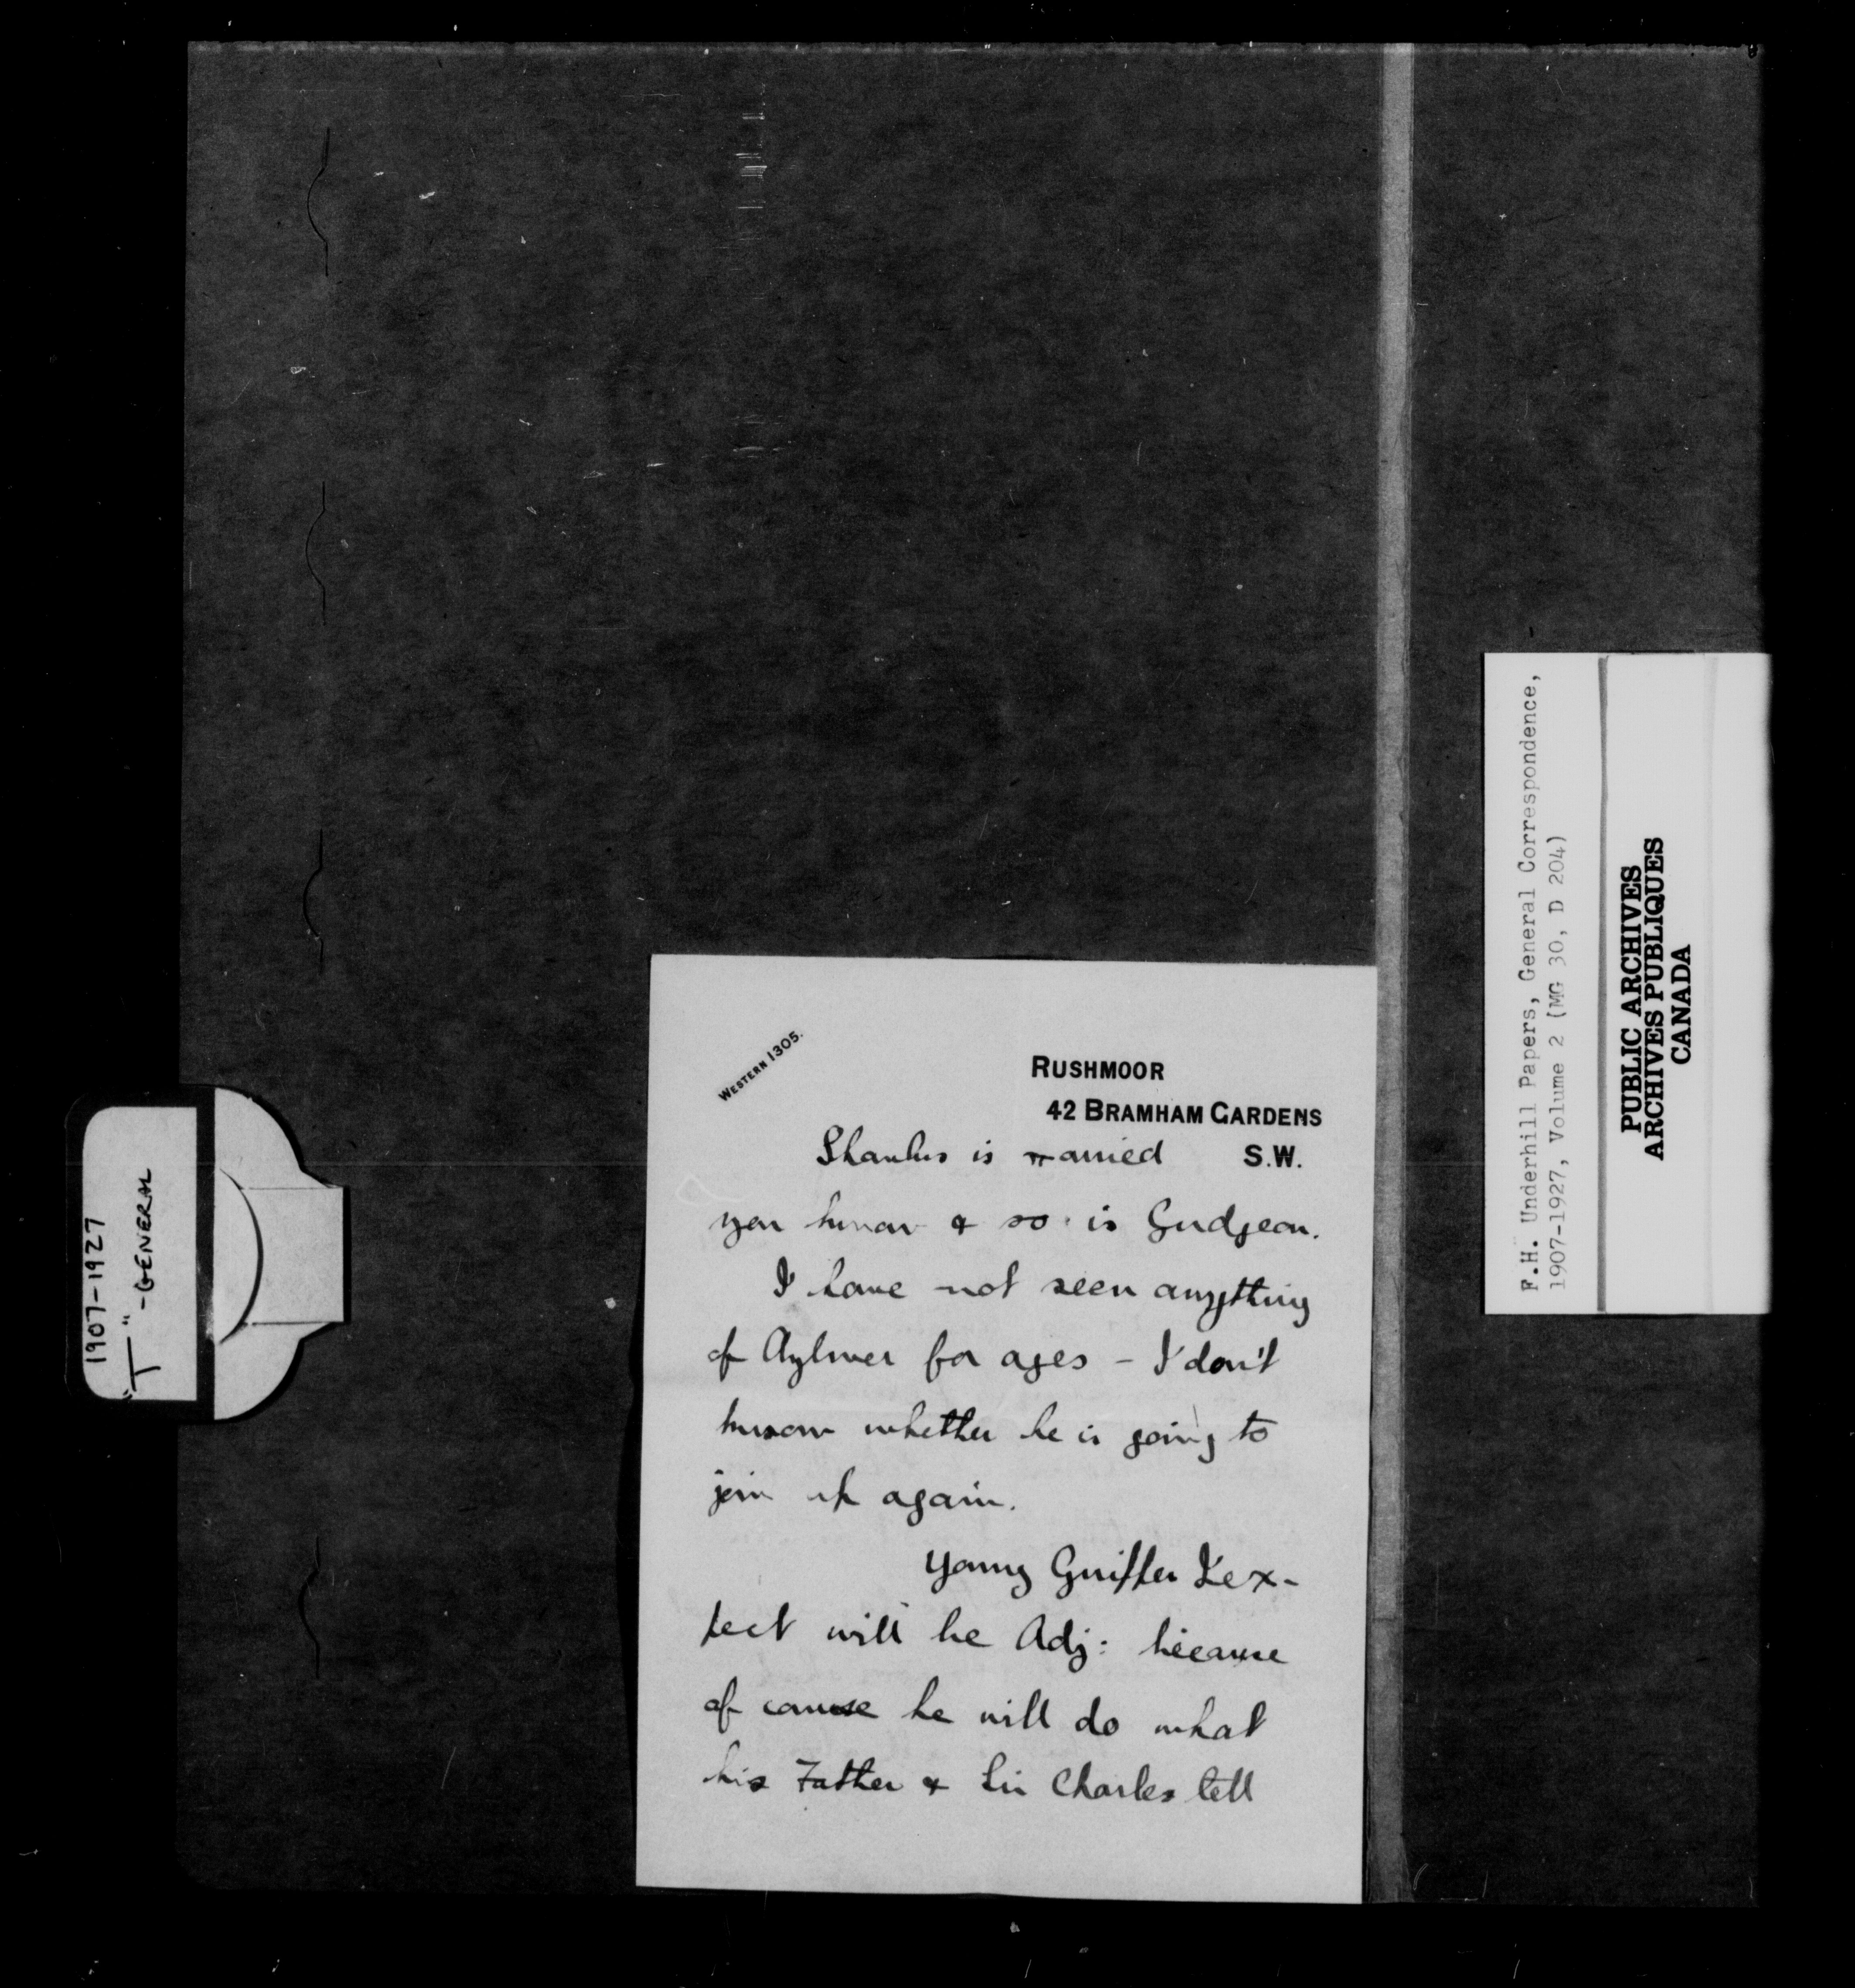 WESTERN 1305.
RUSHMOOR
42 BRAMHAM GARDENS
S.W.
is married
you know & so is Gudgeon.
I have not seen anything
of Aylmer for ages - I don't
know whether he is going to
join up again.
Young I ex-
pect will be Adj: because
of course he will do what
his Father & Sir Charles tell
1907-1927
"T" - GENERAL
F.H. Underhill Papers, General Correspondence,
1907-1927, Volume 2 (MG 30, D 204)
PUBLIC ARCHIVES
ARCHIVES PUBLIQUES
CANADA